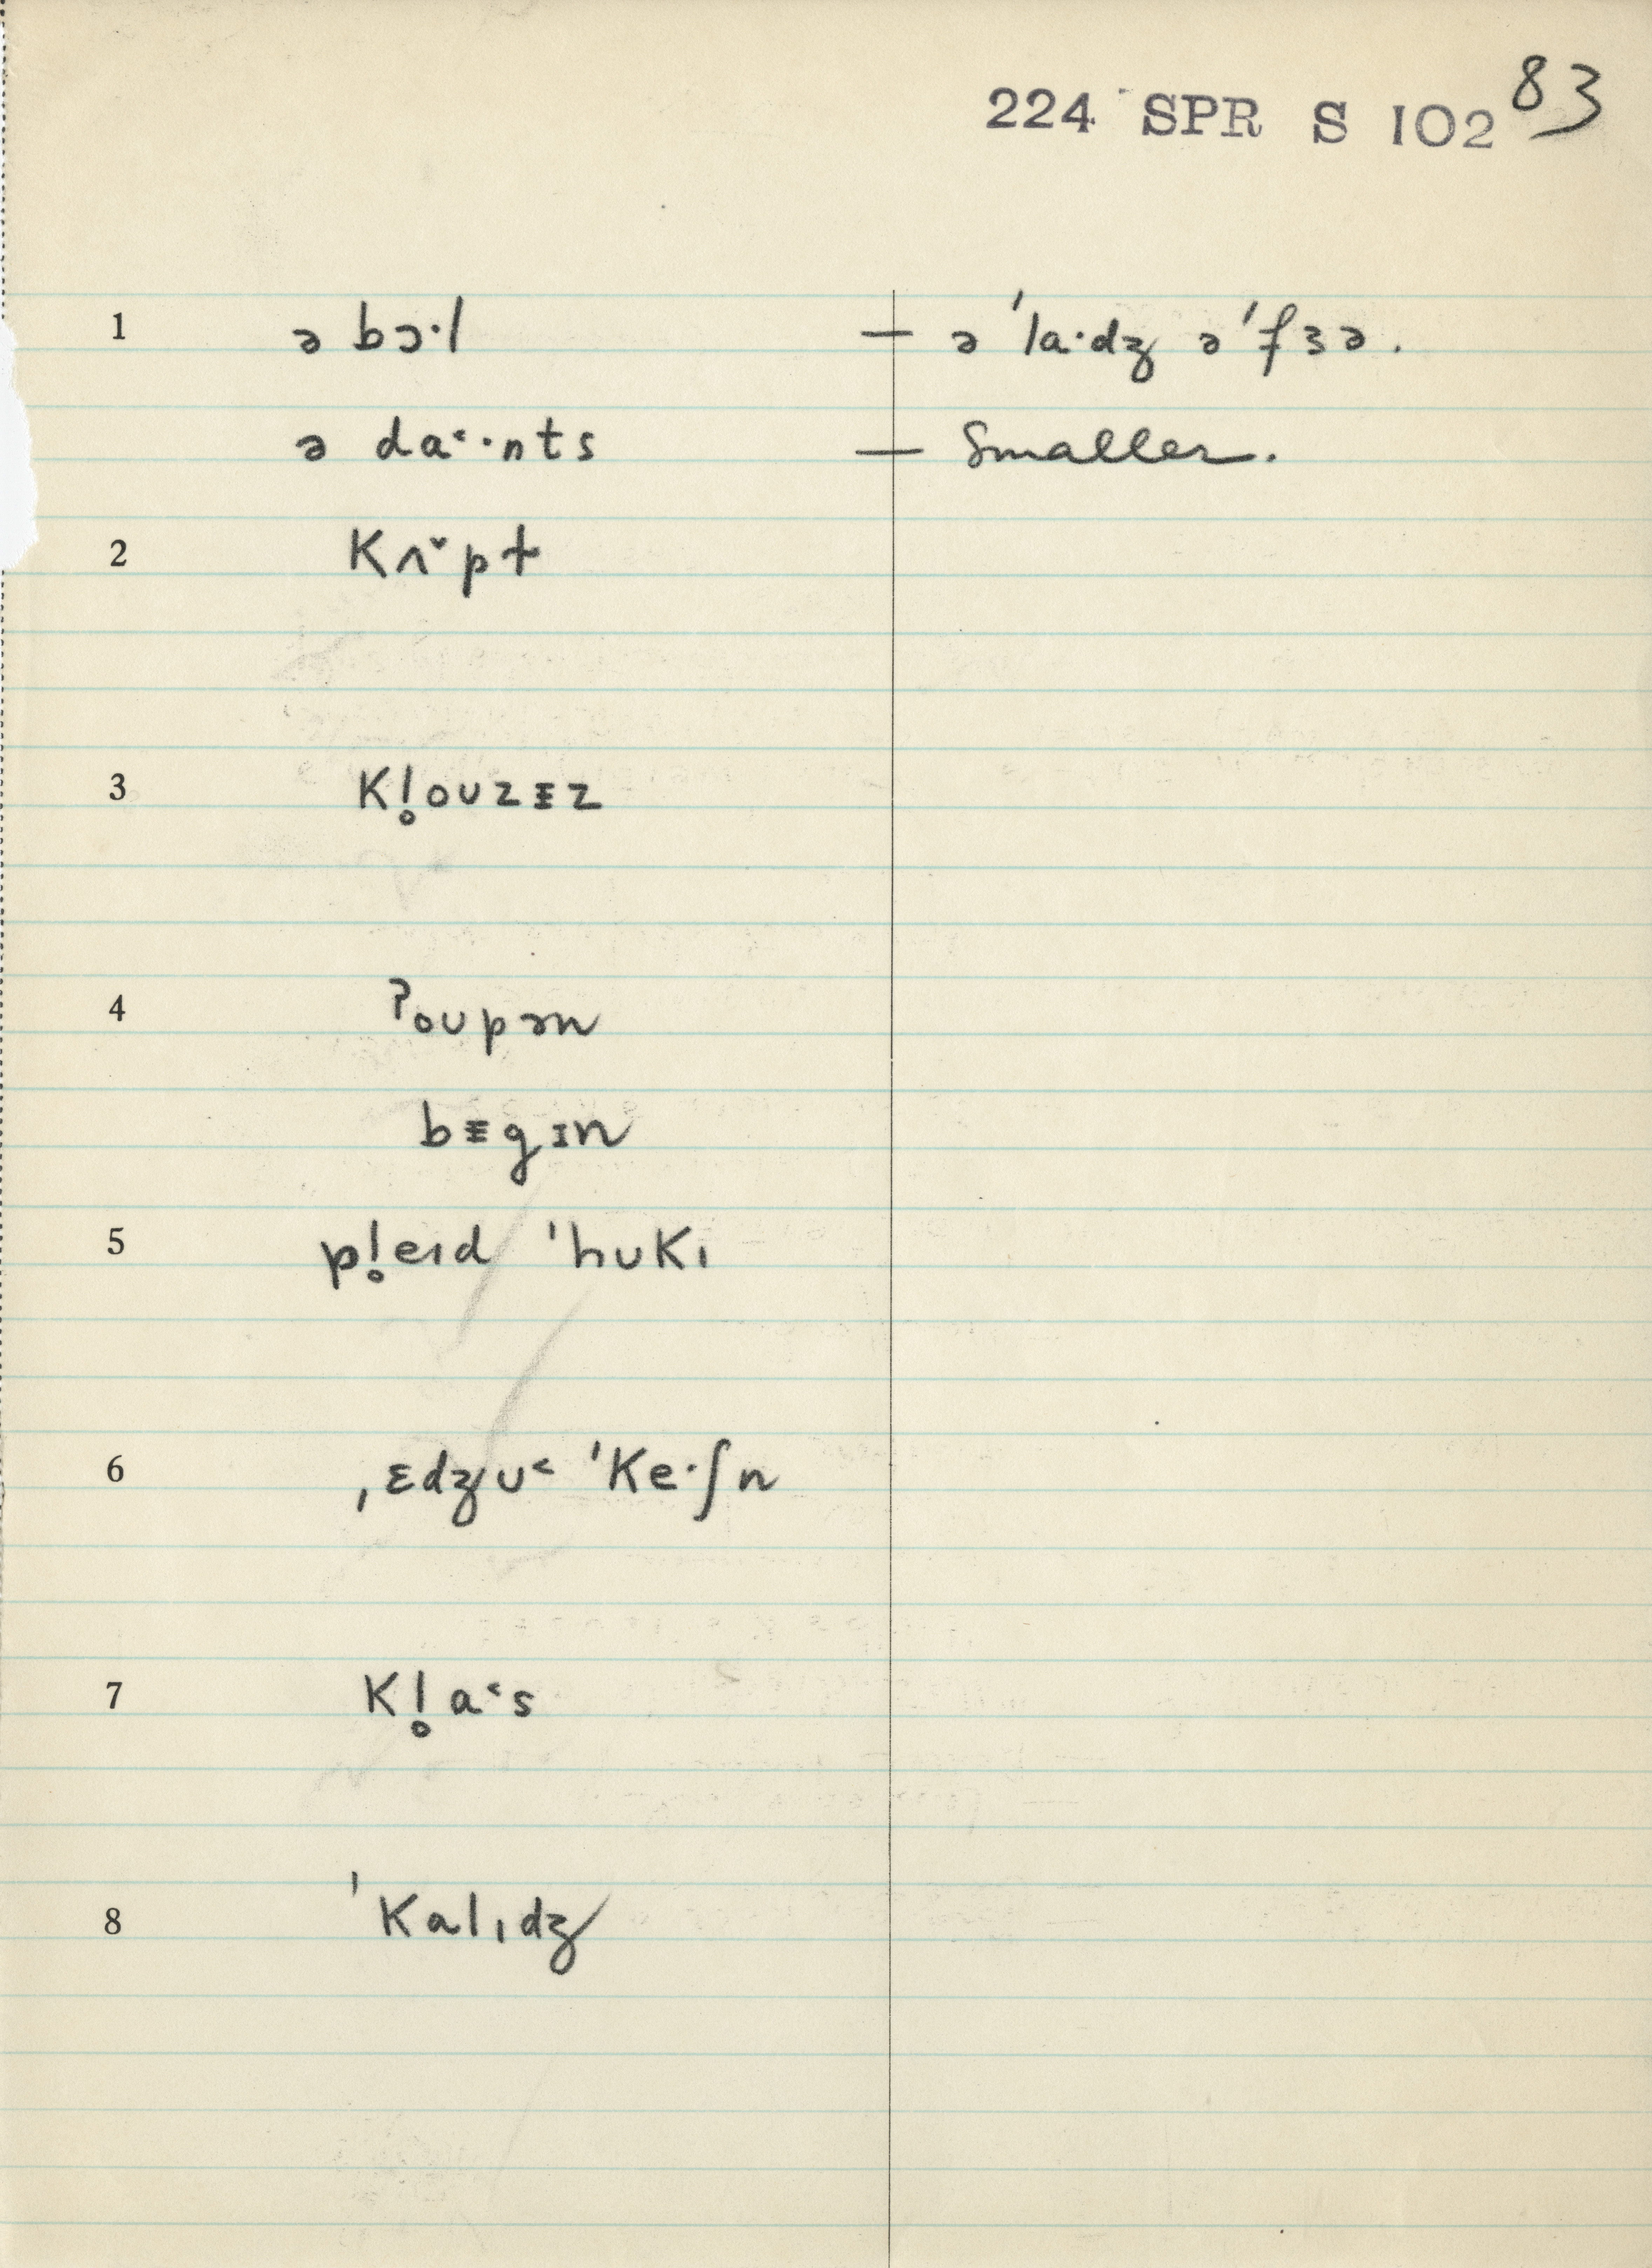 224 SPR S 102 83
1 ə bɔ·l — ə ˈla·dʒ əˈfɜə.
ə da˂·nts — Smaller.
2 Kʌ˅pt
3 Kl̥oᴜzᵻz
4 ʔoᴜpən
bᵻgɪn
5 pl̥eıd ˈhᴜKı
6 ˌɛdʒᴜ˂ ˈKe·ʃn
7 Kl̥a˂s
8 ˈKalıdʒ